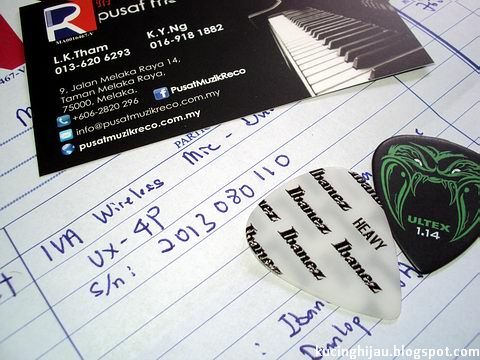 R
MA0016467-V
L.K.Tham
013-620 6293
K.Y.Ng
016-918 1882
9, Jalan Melaka Raya 14,
Taman Melaka Raya,
75000, Melaka.
+606-2820 296
f PusatMuzikReco
info@pusatmuzikreco.com.my
pusatmuzikreco.com.my
IVA Wireless Mic -
UX-4P
S/n: 2013080110
Ibanez
Ibanez
Ibanez
Ibanez
HEAVY
Ibanez
Ibanez
Ibanez
ULTEX
1.14
: Iban
Dunlop
kucinghijau.blogspot.com